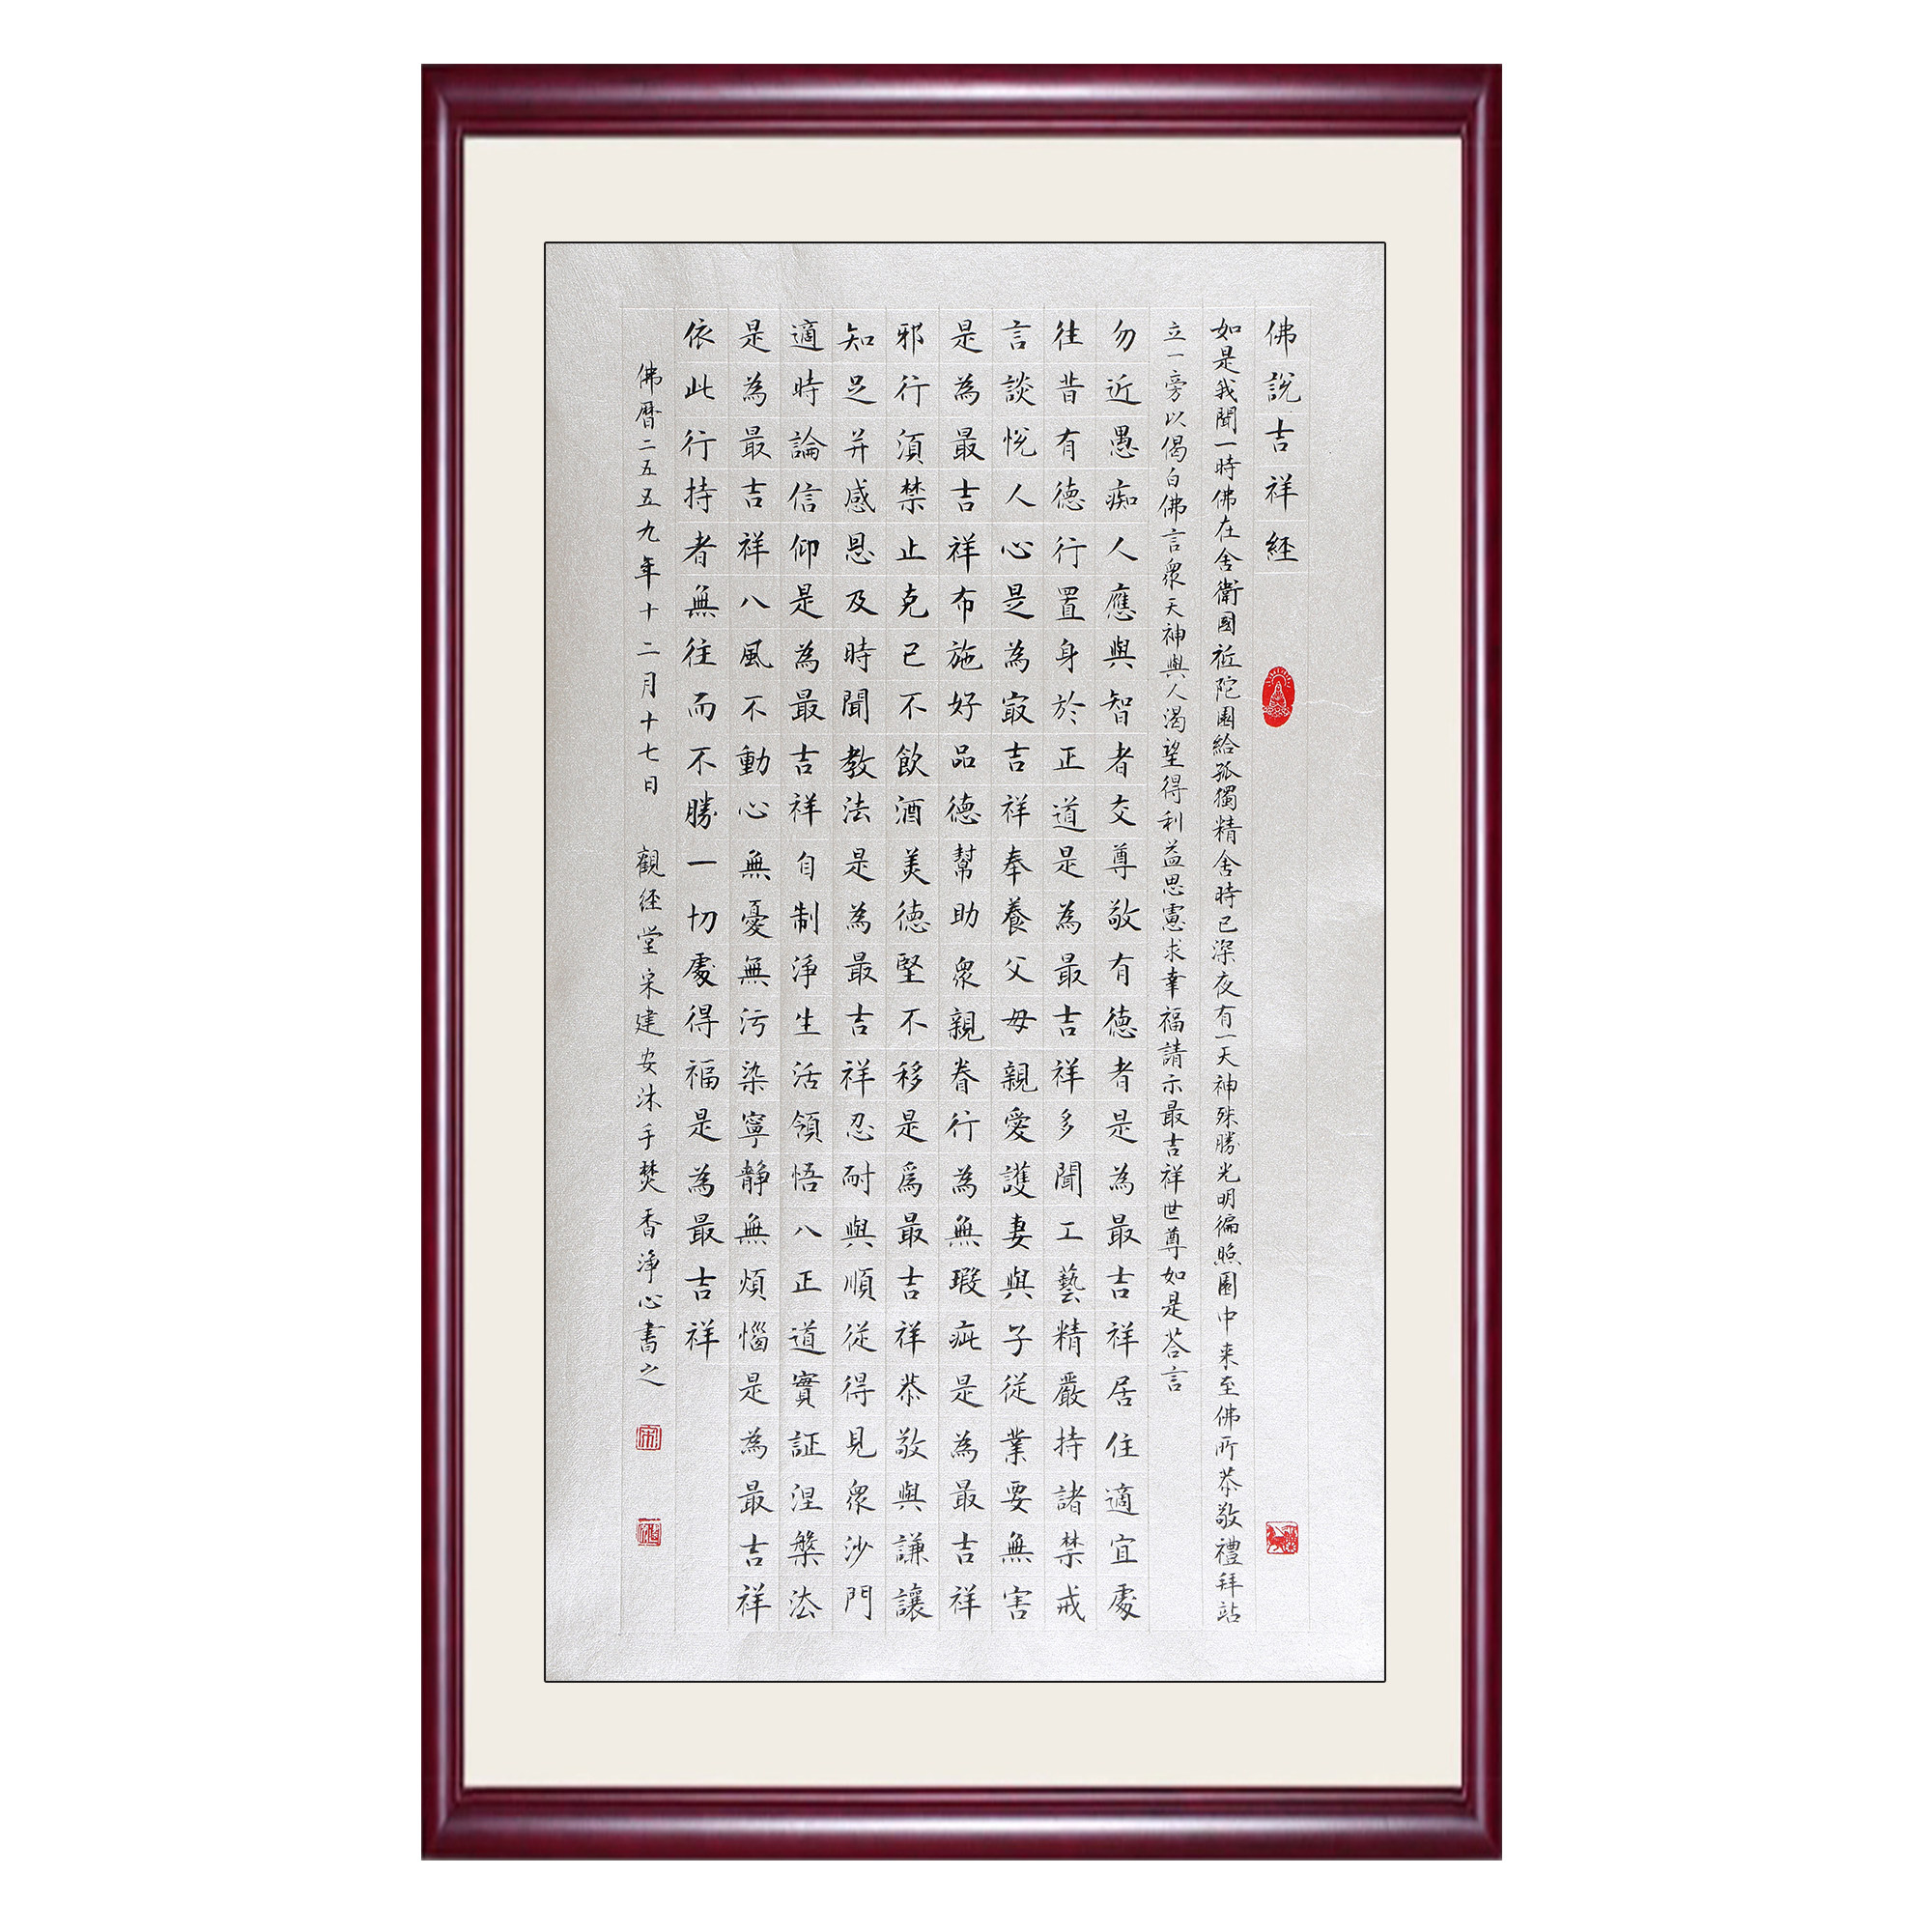 佛説吉祥経
如是我聞一時佛在舍衛國祗陀園給孤獨精舍時已深夜有一天神殊勝光明徧照園中来至佛所恭敬禮拜站
立一旁以偈白佛言衆天神與人渴望得利益思慮求幸福請示最吉祥世尊如是荅言
勿近愚痴人應與智者交尊敬有德者是為最吉祥居住適宜處
往昔有德行置身於正道是為最吉祥多聞工藝精嚴持諸禁戒
言談悅人心是為寂吉祥奉養父母親愛護妻與子従業要無害
是為最吉祥布施好品德幫助衆親眷行為無瑕疵是為最吉祥
邪行須禁止克己不飲酒美德堅不移是爲最吉祥恭敬與謙讓
知足并感恩及時聞教法是為最吉祥忍耐與順従得見衆沙門
適時論信仰是為最吉祥自制淨生活領悟八正道實証涅槃法
是為最吉祥八風不動心無憂無污染寧靜無煩惱是為最吉祥
依此行持者無往而不勝一切處得福是為最吉祥
佛曆二五五九年十二月十七日 觀経堂宋建安沐手焚香淨心書之